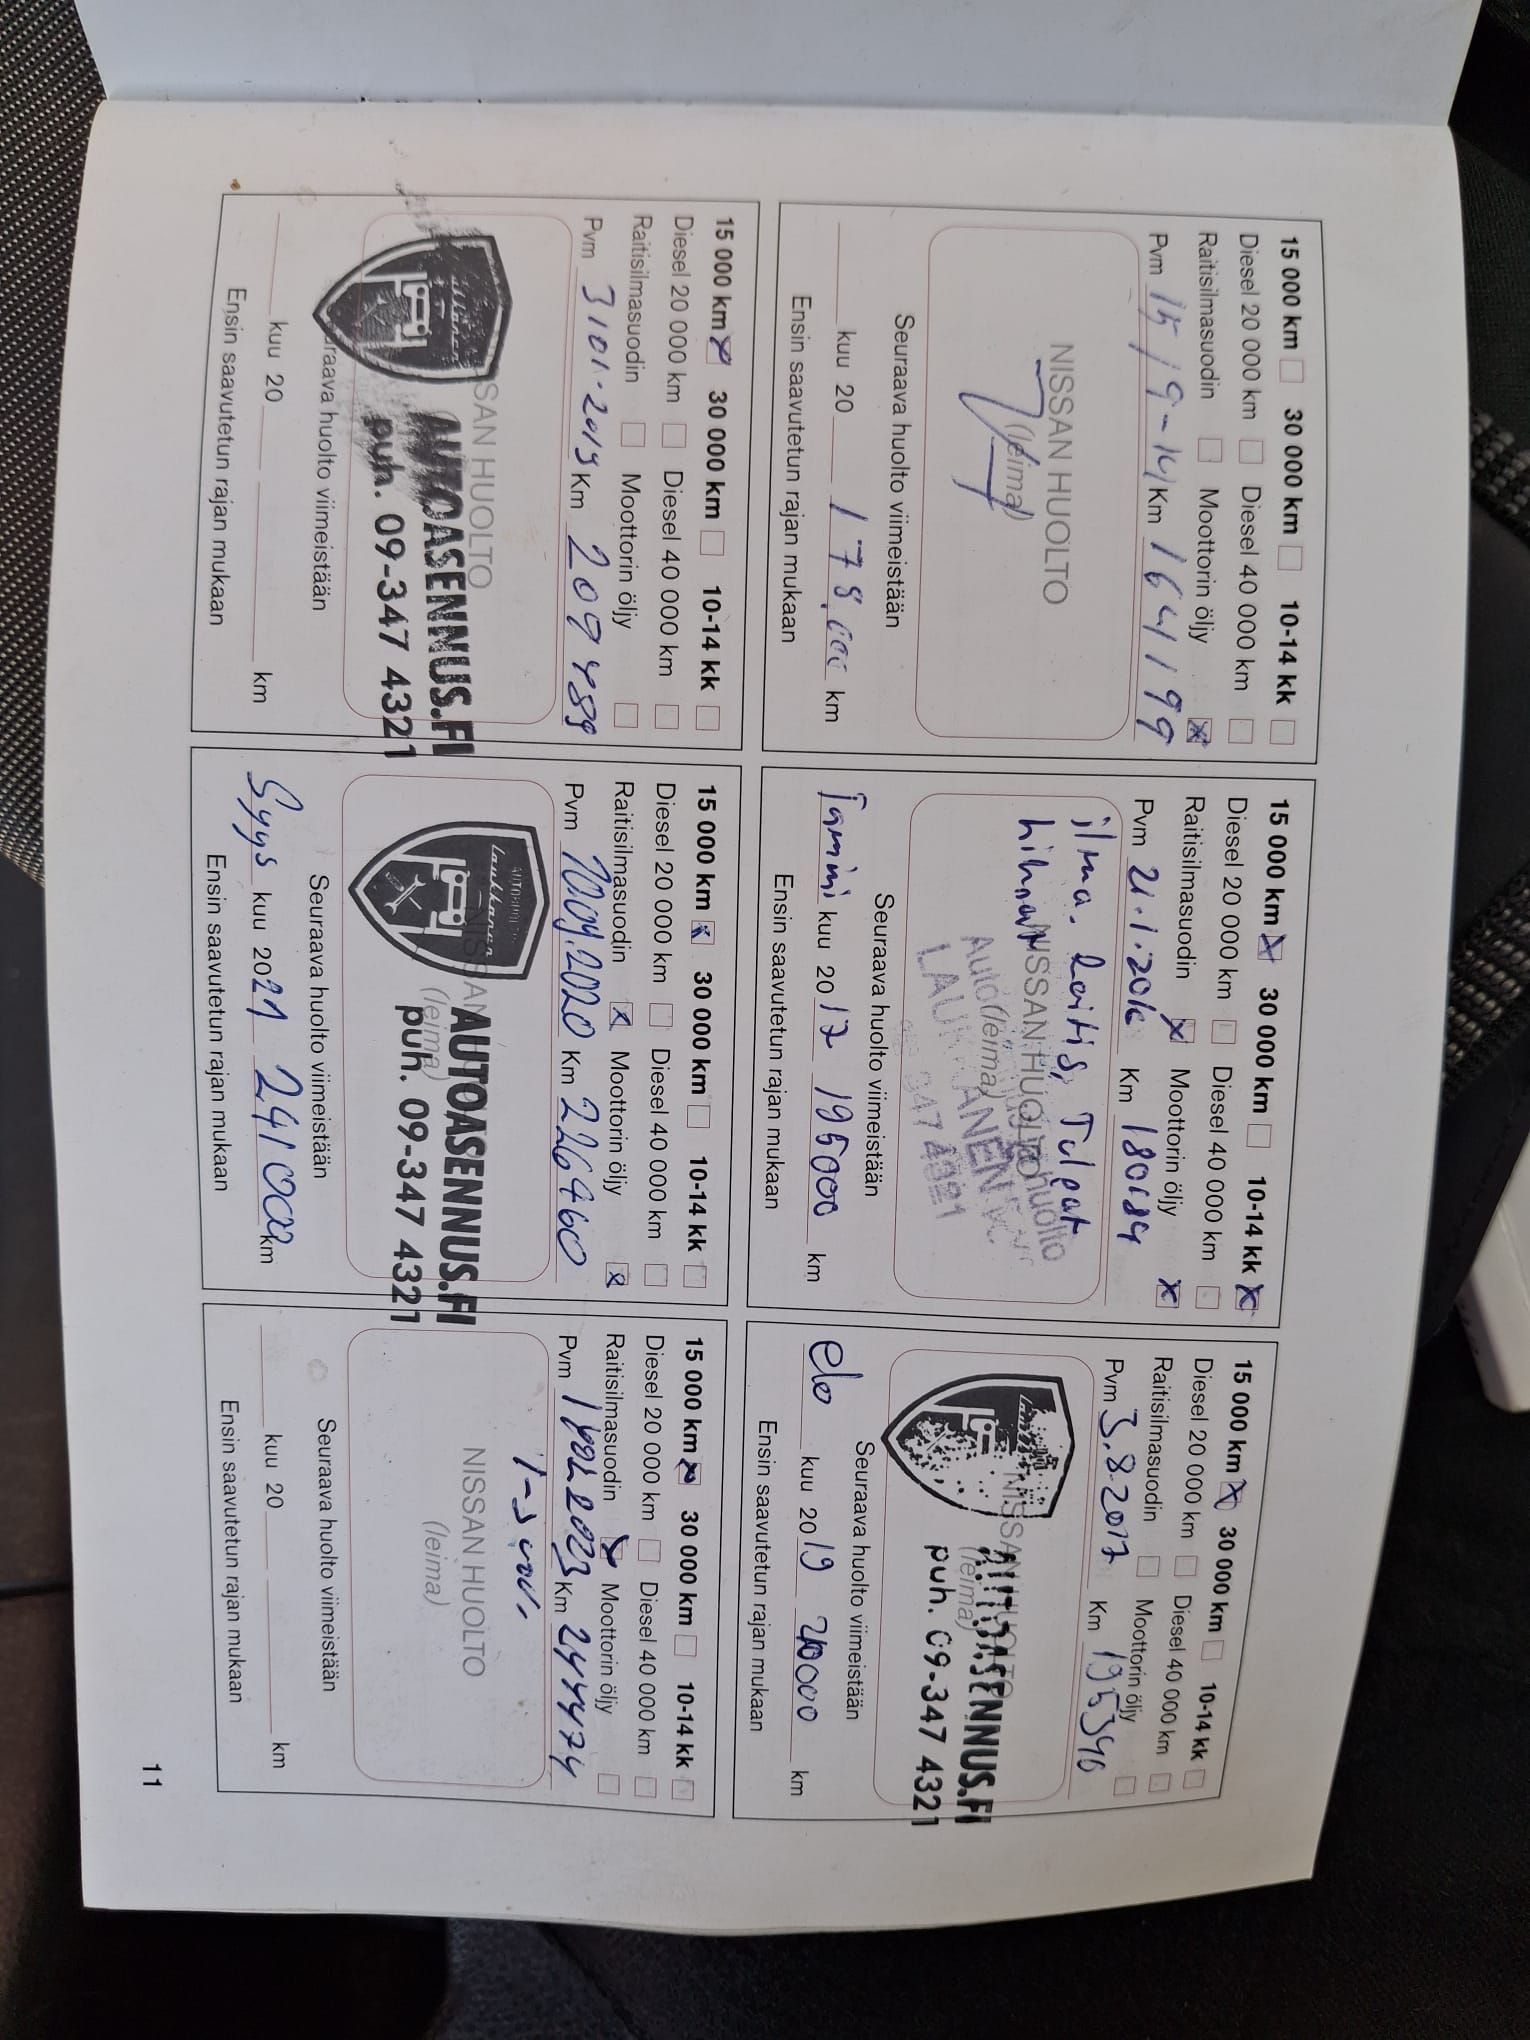 15 000 km ☐ 30 000 km ☐ 10-14 kk ☐
Diesel 20 000 km ☐ Diesel 40 000 km ☐
Raitisilmasuodin ☐ Moottorin öljy ☒
Pvm 15/9-14 Km 164199
NISSAN HUOLTO
(leima)
Seuraava huolto viimeistään
kuu 20 178.000 km
Ensin saavutetun rajan mukaan
15 000 km ☒ 30 000 km ☐ 10-14 kk ☒
Diesel 20 000 km ☐ Diesel 40 000 km ☐
Raitisilmasuodin ☒ Moottorin öljy ☒
Pvm 21.1.2016 Km 180184
ilma. Raitis, Tulpat
hihnat
NISSAN HUOLTO
Autohuolto
(leima)
LAUKKANEN
347 4321
Seuraava huolto viimeistään
Tammi kuu 2017 195000 km
Ensin saavutetun rajan mukaan
15 000 km ☒ 30 000 km ☐ 10-14 kk ☐
Diesel 20 000 km ☐ Diesel 40 000 km ☐
Raitisilmasuodin ☐ Moottorin öljy ☐
Pvm 3.8.2017 Km 195340
NISSAN HUOLTO
AUTOASENNUS.FI
(leima)
puh. 09-347 4321
Seuraava huolto viimeistään
elo kuu 2019 210000 km
Ensin saavutetun rajan mukaan
15 000 km ☒ 30 000 km ☐ 10-14 kk ☐
Diesel 20 000 km ☐ Diesel 40 000 km ☐
Raitisilmasuodin ☐ Moottorin öljy ☐
Pvm 3101.2019 Km 209489
NISSAN HUOLTO
AUTOASENNUS.FI
puh. 09-347 4321
Seuraava huolto viimeistään
kuu 20 km
Ensin saavutetun rajan mukaan
15 000 km ☒ 30 000 km ☐ 10-14 kk ☐
Diesel 20 000 km ☐ Diesel 40 000 km ☐
Raitisilmasuodin ☒ Moottorin öljy ☒
Pvm 1009.2020 Km 226460
AUTOHUOLTO
Laukkanen
NISSAN
AUTOASENNUS.FI
(leima)
puh. 09-347 4321
Seuraava huolto viimeistään
Syys kuu 2021 241000 km
Ensin saavutetun rajan mukaan
15 000 km ☒ 30 000 km ☐ 10-14 kk ☐
Diesel 20 000 km ☐ Diesel 40 000 km ☐
Raitisilmasuodin ☒ Moottorin öljy ☐
Pvm 2023 Km 244474
NISSAN HUOLTO
(leima)
Seuraava huolto viimeistään
kuu 20 km
Ensin saavutetun rajan mukaan
11